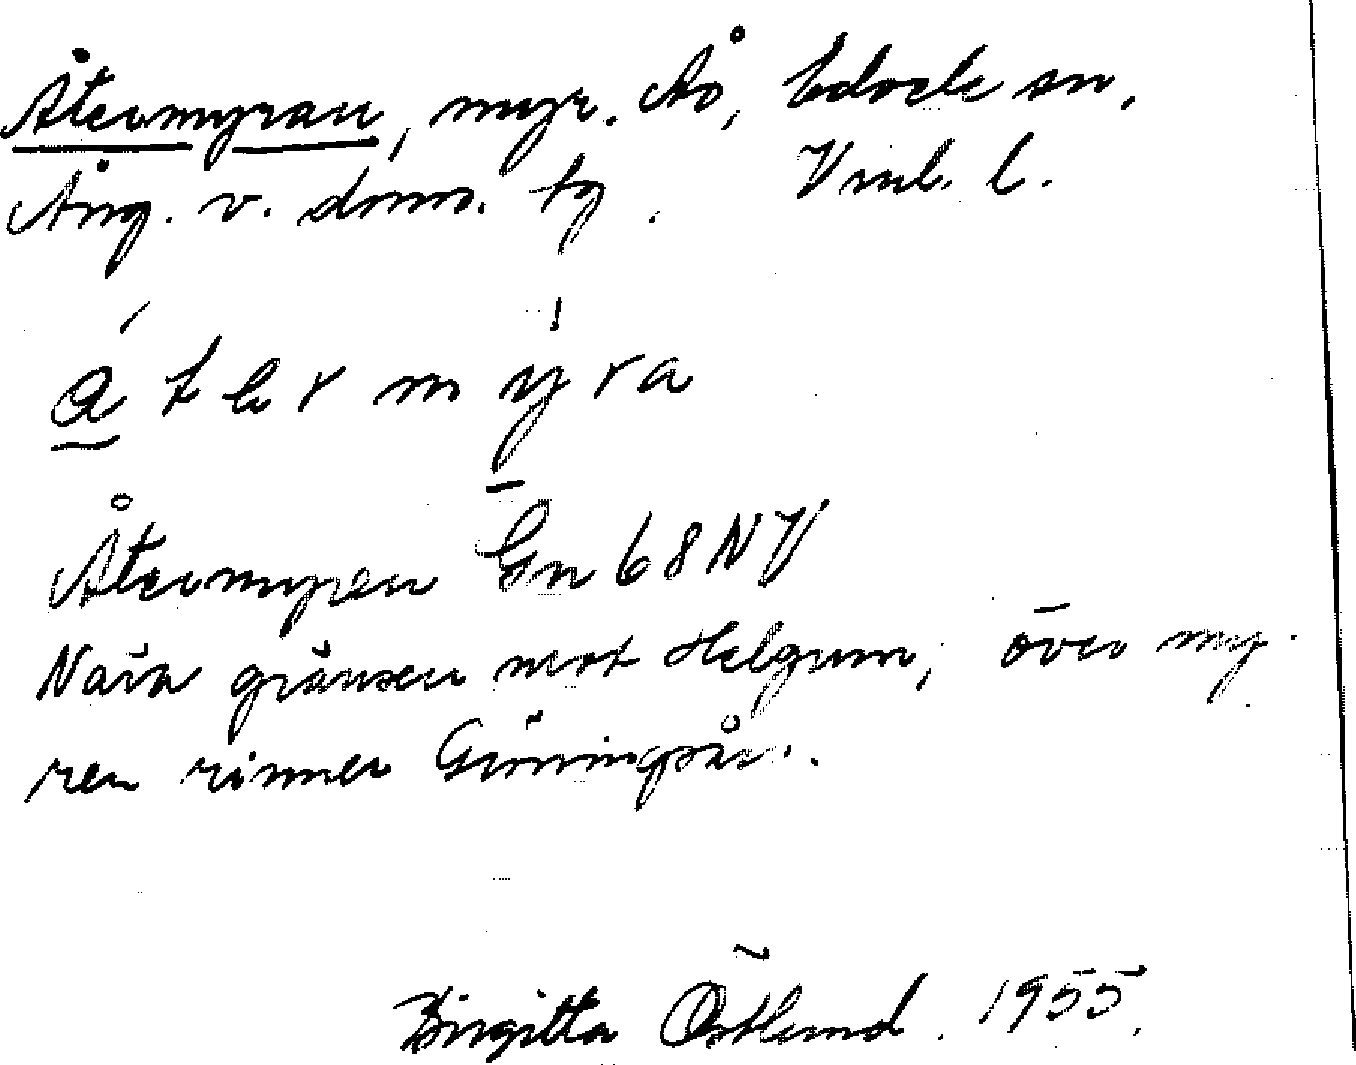 Återmyran, myr. Ås, Edsele sn.
Ång. v. doms. tg. Vml. l.
å t e r m y r a
Återmyren Gn 68 NV
Nära gränsen mot Helgum, över my-
ren rinner Gäningsån.
Birgitta Östlund. 1955.